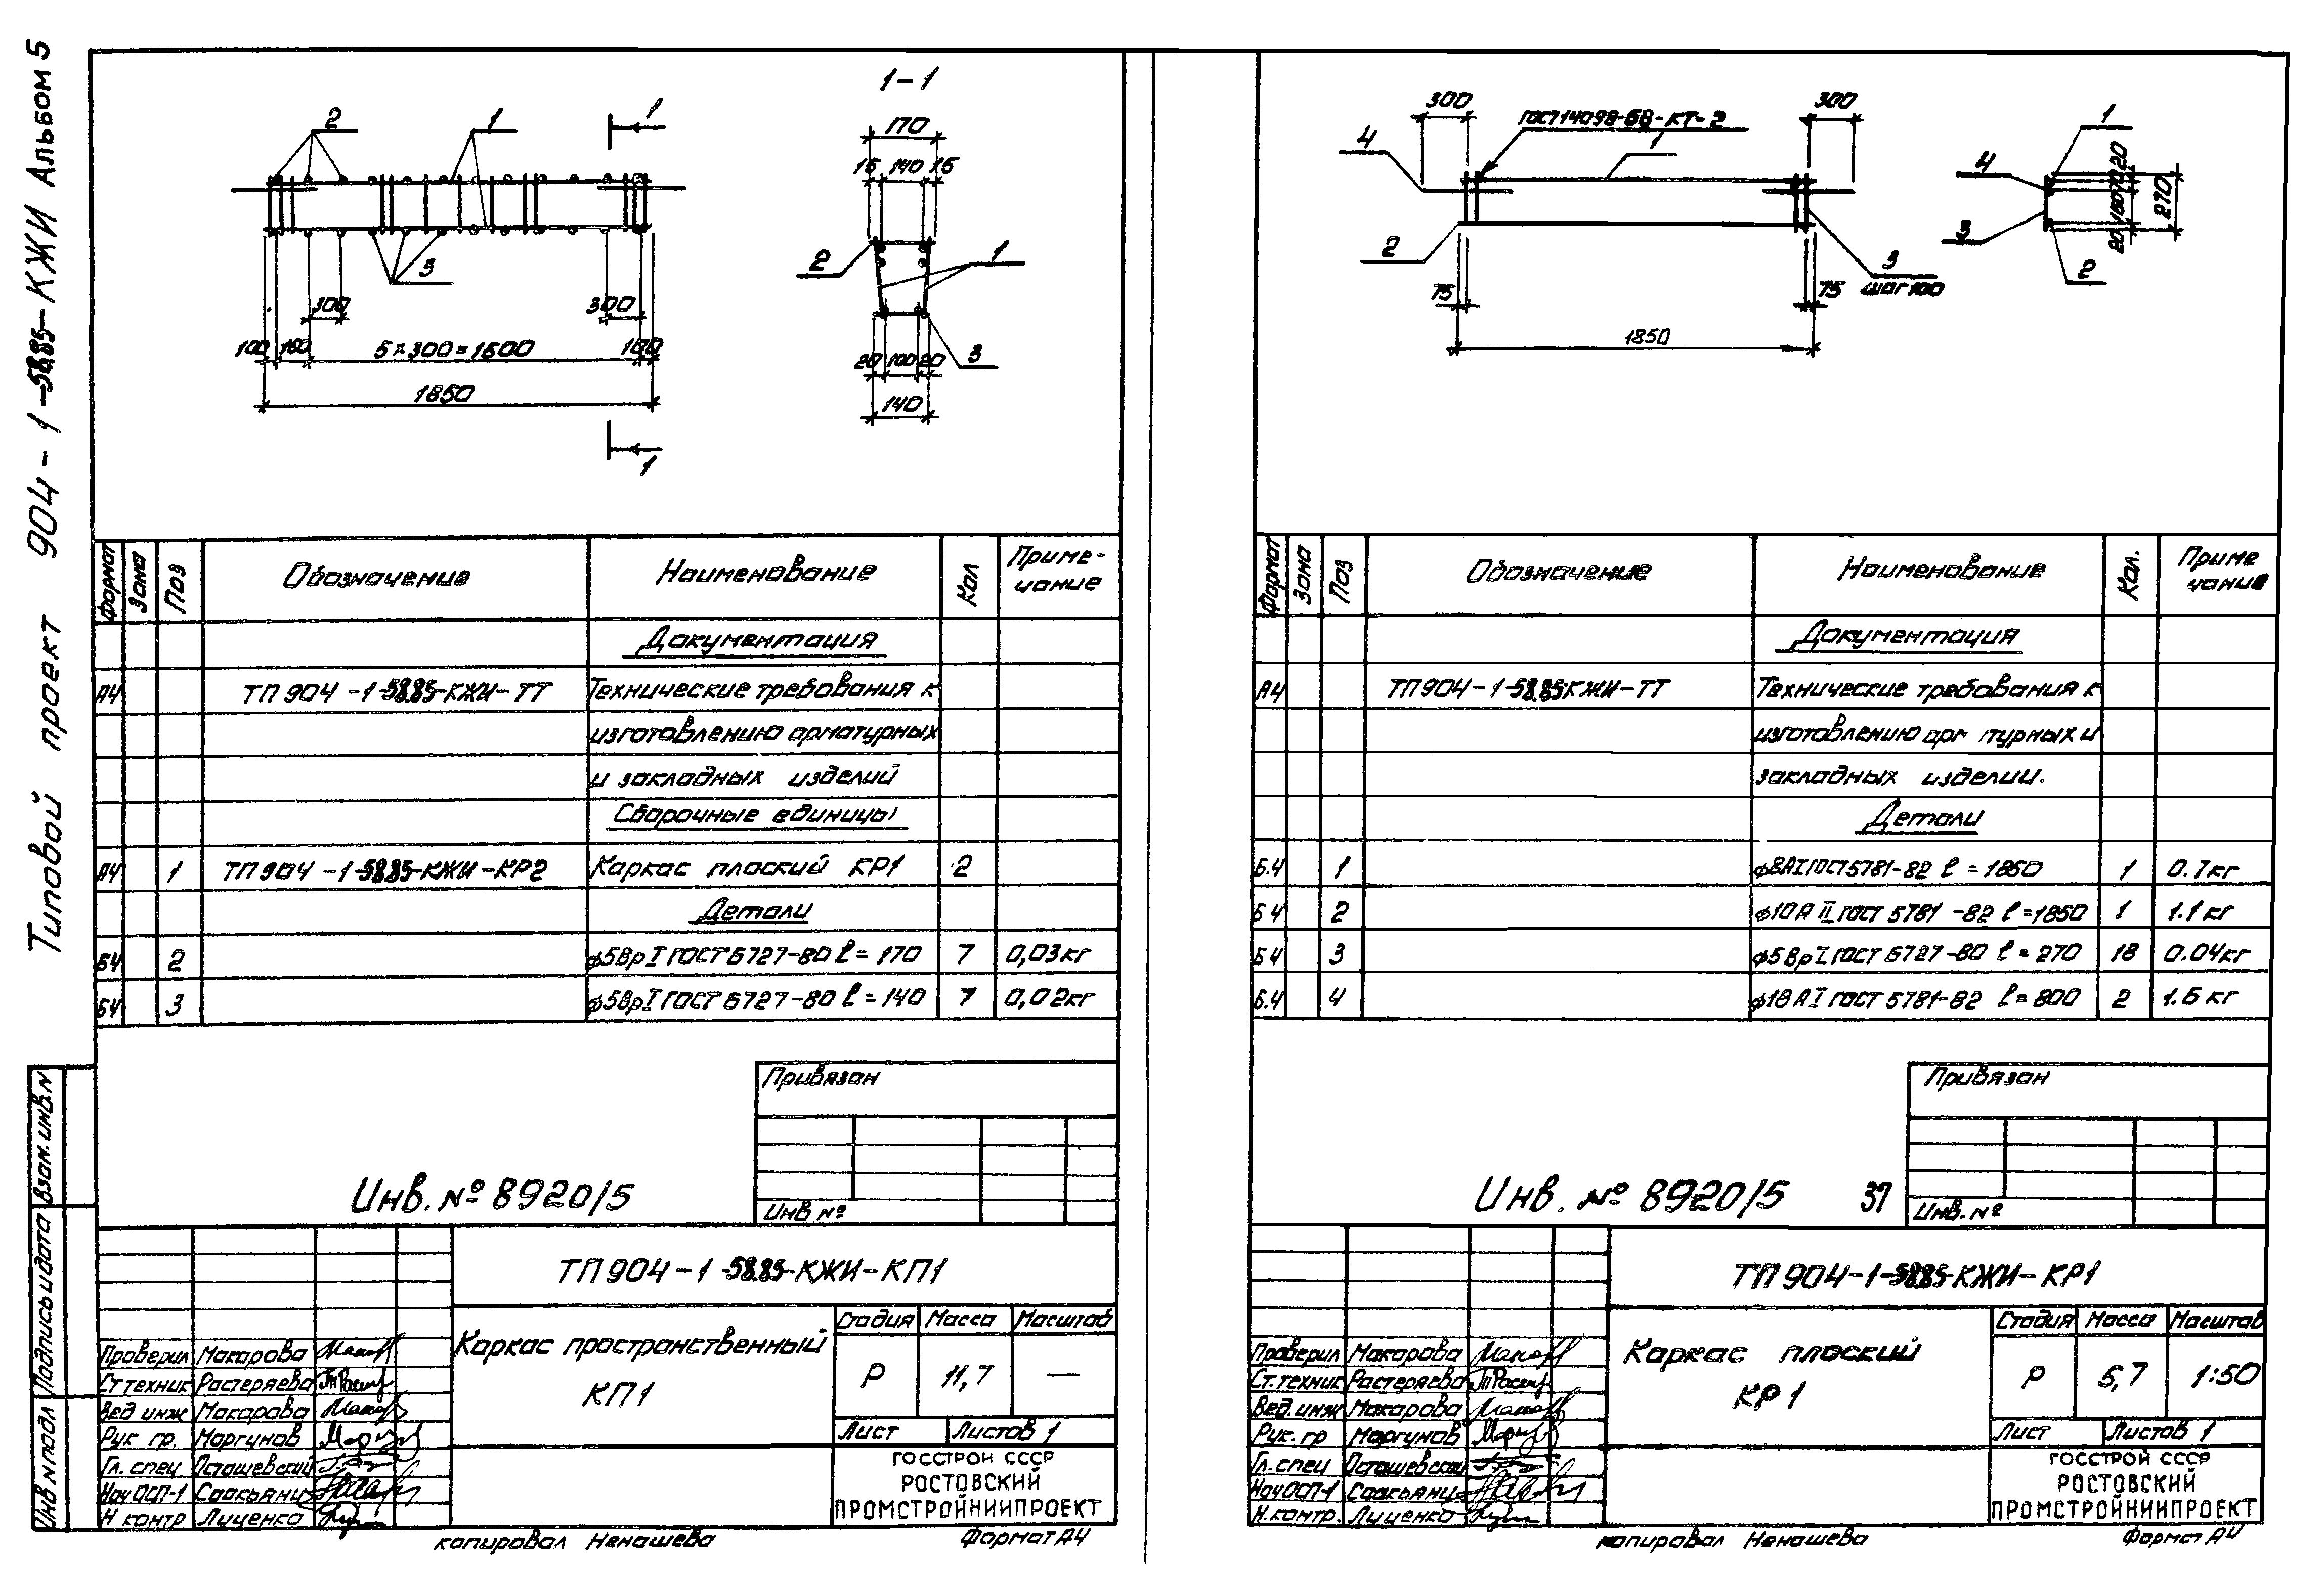 Типовой проект 904-1-58.85-КЖИ Альбом 5
1-1
2
1
1
170
15 140 15
3
2
1
300
300
100
5×300=1600
100
1850
20 100 20
3
140
1
Формат Зона Поз Обозначение Наименование Кол Приме-
чание
Документация
А4 ТП904-1-58.85-КЖИ-ТТ Технические требования к
изготовлению арматурных
и закладных изделий
Сборочные единицы
А4 1 ТП904-1-58.85-КЖИ-КР2 Каркас плоский КР1 2
Детали
Б4 2 ф5ВрI ГОСТ 6727-80 ℓ=170 7 0,03кг
Б4 3 ф5ВрI ГОСТ 6727-80 ℓ=140 7 0,02кг
Привязан
Инв. № 8920/5
Инв №
ТП904-1-58.85-КЖИ-КП1
Каркас пространственный
КП1
Стадия Масса Масштаб
Р 11,7 —
Лист Листов 1
Проверил Макарова
Ст техник Растеряева
Вед инж Макарова
Рук гр. Моргунов
Гл. спец Осташевский
Нач ОСП-1 Саакьянц
Н контр Луценко
ГОССТРОЙ СССР
РОСТОВСКИЙ
ПРОМСТРОЙНИИПРОЕКТ
копировал Ненашева
Формат А4
Взам. инв. N
Подпись и дата
Инв N подл
300
ГОСТ 14098-68-КТ-2
300
4
1
1
4
20
270
3
20
2
2
3
шаг 100
75
75
1850
Формат Зона Поз Обозначение Наименование Кол. Приме
чание
Документация
А4 ТП904-1-58.85КЖИ-ТТ Технические требования к
изготовлению арм турных и
закладных изделии.
Детали
Б.4 1 ф8АI ГОСТ 5781-82 ℓ=1850 1 0.7кг
Б4 2 ф10А II ГОСТ 5781-82 ℓ=1850 1 1.1кг
Б4 3 ф5ВрI ГОСТ 6727-80 ℓ=270 18 0.04кг
Б.4 4 ф18 АI ГОСТ 5781-82 ℓ=800 2 1.6 кг
Привязан
Инв. № 8920/5 37
Инв. №
ТП904-1-58.85-КЖИ-КР1
Каркас плоский
КР1
Стадия Масса Масштаб
Р 5,7 1:50
Лист Листов 1
Проверил Макарова
Ст. техник Растеряева
Вед. инж Макарова
Рук. гр Моргунов
Гл. спец Осташевский
Нач ОСП-1 Саакьянц
Н. контр. Луценко
ГОССТРОЙ СССР
РОСТОВСКИЙ
ПРОМСТРОЙНИИПРОЕКТ
копировал Ненашева
Формат А4